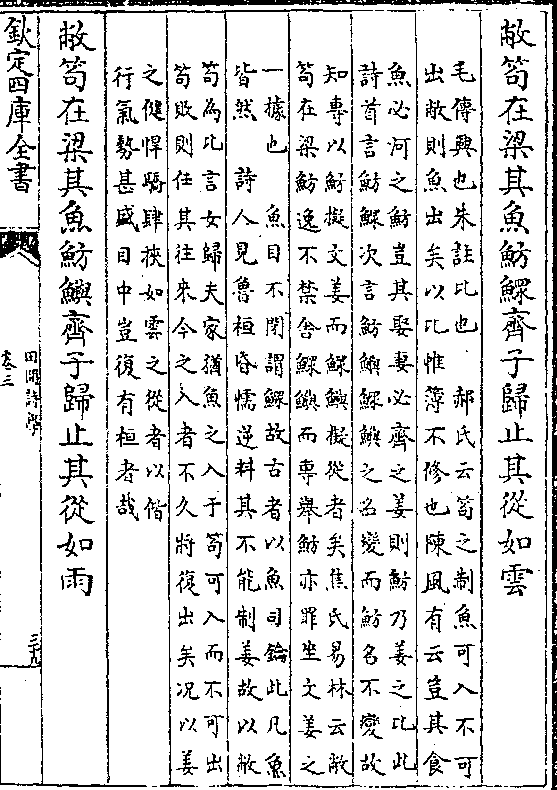 敝笱在梁其魚魴鰥齊子歸止其從如雲
毛傳興也朱註比也　郝氏云笱之制魚可入不可
出敝則魚出矣以比惟薄不修也陳風有云豈其食
魚必河之魴豈其娶妻必齊之姜則魴乃姜之比此
詩首言魴鰥次言魴鱮鰥鱮之名變而魴名不變故
知專以魴擬文姜而鰥鱮擬從者矣焦氏易林云敝
笱在梁魴逸不禁舍鰥鱮而專舉魴亦罪坐文姜之
一據也　魚目不閉謂鰥故古者以魚司鑰此凡魚
皆然　詩人見魯桓昏懦逆料其不能制姜故以敝
笱為比言女歸夫家猶魚之入于笱可入而不可出
笱敗則任其往來今之入者不久將復出矣况以姜
之健悍驕肆挾如雲之從者以偕
行氣勢甚盛目中豈復有桓者哉
敝笱在梁其魚魴鱮齊子歸止其從如雨
欽定四庫全書
田間詩學
卷三